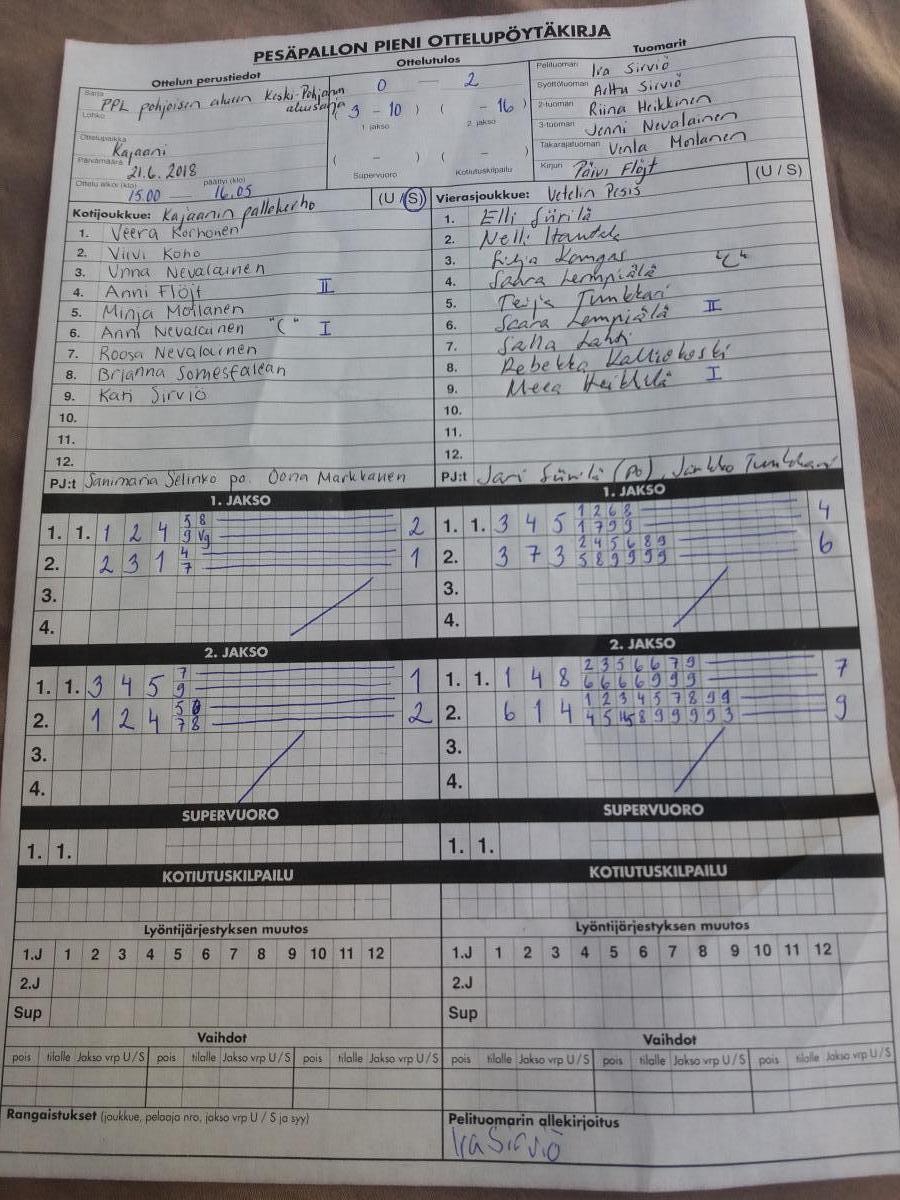 PESÄPALLON PIENI OTTELUPÖYTÄKIRJA
Ottelun perustiedot
Sarja PPL pohjoisen alueen Keski-Pohjanm aluesarja
Lohko
Ottelupaikka Kajaani
Päivämäärä 21.6.2018
Ottelu alkoi (klo) 15.00 päättyi (klo) 16.05
Ottelutulos
0 2
( 3 - 10 ) ( - 16 )
1 jakso 2. jakso
( - ) ( - )
Supervuoro Kotiutuskilpailu
Tuomarit
Pelituomari Ira Sirviö
Syöttötuomari Arttu Sirviö
2-tuomari Riina Heikkinen
3-tuomari Jenni Nevalainen
Takarajatuomari Venla Moilanen
Kirjuri Päivi Flöjt
Kotijoukkue: Kajaanin pallokerho (U / S)
1. Veera Korhonen
2. Viivi Koho
3. Unna Nevalainen
4. Anni Flöjt II
5. Minja Moilanen
6. Anni Nevalainen "C" I
7. Roosa Nevalainen
8. Brianna Somesfalean
9. Kati Sirviö
10.
11.
12.
PJ:t Sanimaria Selinko po. Oona Markkanen
Vierasjoukkue: Vetelin Pesis (U / S)
1. Elli Siirilä
2. Nelli
3. Kangas "C"
4. Saara Lempiälä
5. Teija Tunkkari
6. Saara Lempiälä II
7. Salla Lahti
8. Rebekka Kalliokoski
9. Meea Heikkilä I
10.
11.
12.
PJ:t Jari Siirilä (po), Jarkko Tunkkari
1. JAKSO
1. 1. 1 2 4 5 8 2
9 Vg
2. 2 3 1 4 1
7
3.
4.
1. JAKSO
1. 1. 3 4 5 1 2 6 8 4
1 7 9 9
2. 3 7 3 2 4 5 6 8 9 6
5 8 9 9 9 9
3.
4.
2. JAKSO
1. 1. 3 4 5 7 1
9
2. 1 2 4 5 2
7 8
3.
4.
2. JAKSO
1. 1. 1 4 8 2 3 5 6 6 7 9 7
6 6 6 6 9 9 9
2. 6 1 4 1 2 3 4 5 7 8 9 9 9
4 5 8 9 9 9 9 3
3.
4.
SUPERVUORO
1. 1.
SUPERVUORO
1. 1.
KOTIUTUSKILPAILU
KOTIUTUSKILPAILU
Lyöntijärjestyksen muutos
1.J 1 2 3 4 5 6 7 8 9 10 11 12
2.J
Sup
Lyöntijärjestyksen muutos
1.J 1 2 3 4 5 6 7 8 9 10 11 12
2.J
Sup
Vaihdot
pois tilalle Jakso vrp U/S pois tilalle Jakso vrp U/S pois tilalle Jakso vrp U/S
Vaihdot
pois tilalle Jakso vrp U/S pois tilalle Jakso vrp U/S pois tilalle Jakso vrp U/S
Rangaistukset (joukkue, pelaaja nro, jakso vrp U / S ja syy)
Pelituomarin allekirjoitus
Ira Sirviö